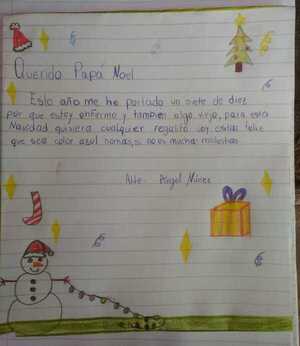 Querido Papá Noel
Este año me he portado un siete de diez
por que estoy enfermo y tambien algo viejo, para esta
Navidad quisiera cualquier regalito voy estar feliz
que sea color azul nomas, si no es mucha molestia
Atte- Angel Núñez